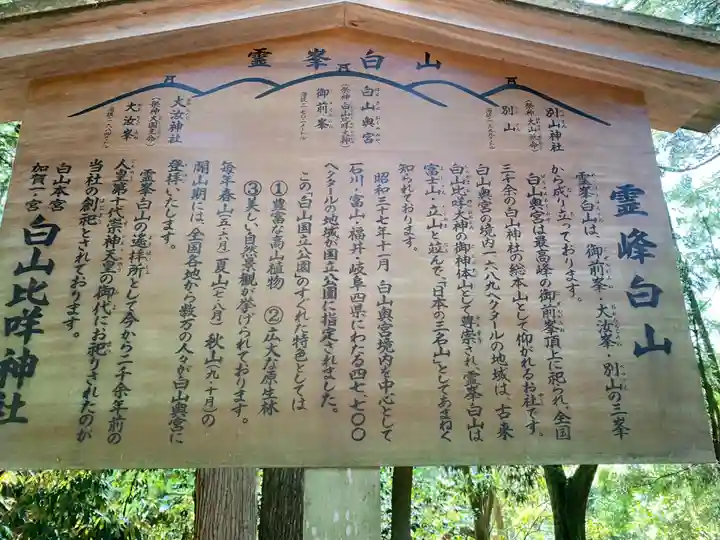 霊峯白山
別山神社
(祭神大山祇命)
別山
白山奥宮
(祭神白山比咩大神)
御前峯
大汝神社
(祭神大國主命)
大汝峯
霊峰白山
霊峯白山は、御前峯・大汝峯・別山の三峯
から成り立っております。
白山奥宮は最高峰の御前峯頂上に祀られ、全国
三千余の白山神社の総本山として仰がれるお社です。
白山奥宮の境内一六八九ヘクタールの地域は、古来
白山比咩大神の御神体山として尊崇され、霊峯白山は
富士山・立山と並んで、「日本の三名山」としてあまねく
知られております。
昭和三十七年十一月 白山奥宮境内を中心として
石川・富山・福井・岐阜四県にわたる四七、七〇〇
ヘクタールの地域が国立公園に指定されました。
この「白山国立公園」のすぐれた特色としては
①豊富な高山植物 ②広大な原生林
③美しい自然景観が挙げられております。
毎年春山(五・六月)夏山(七・八月)秋山(九・十月)の
開山期には、全国各地から数万の人々が白山奥宮に
登拝いたします。
霊峯白山の遙拝所として今から二千余年前の
人皇第十代崇神天皇の御代にお祀りされたのが
当社の創祀とされております。
白山本宮
加賀一宮
白山比咩神社